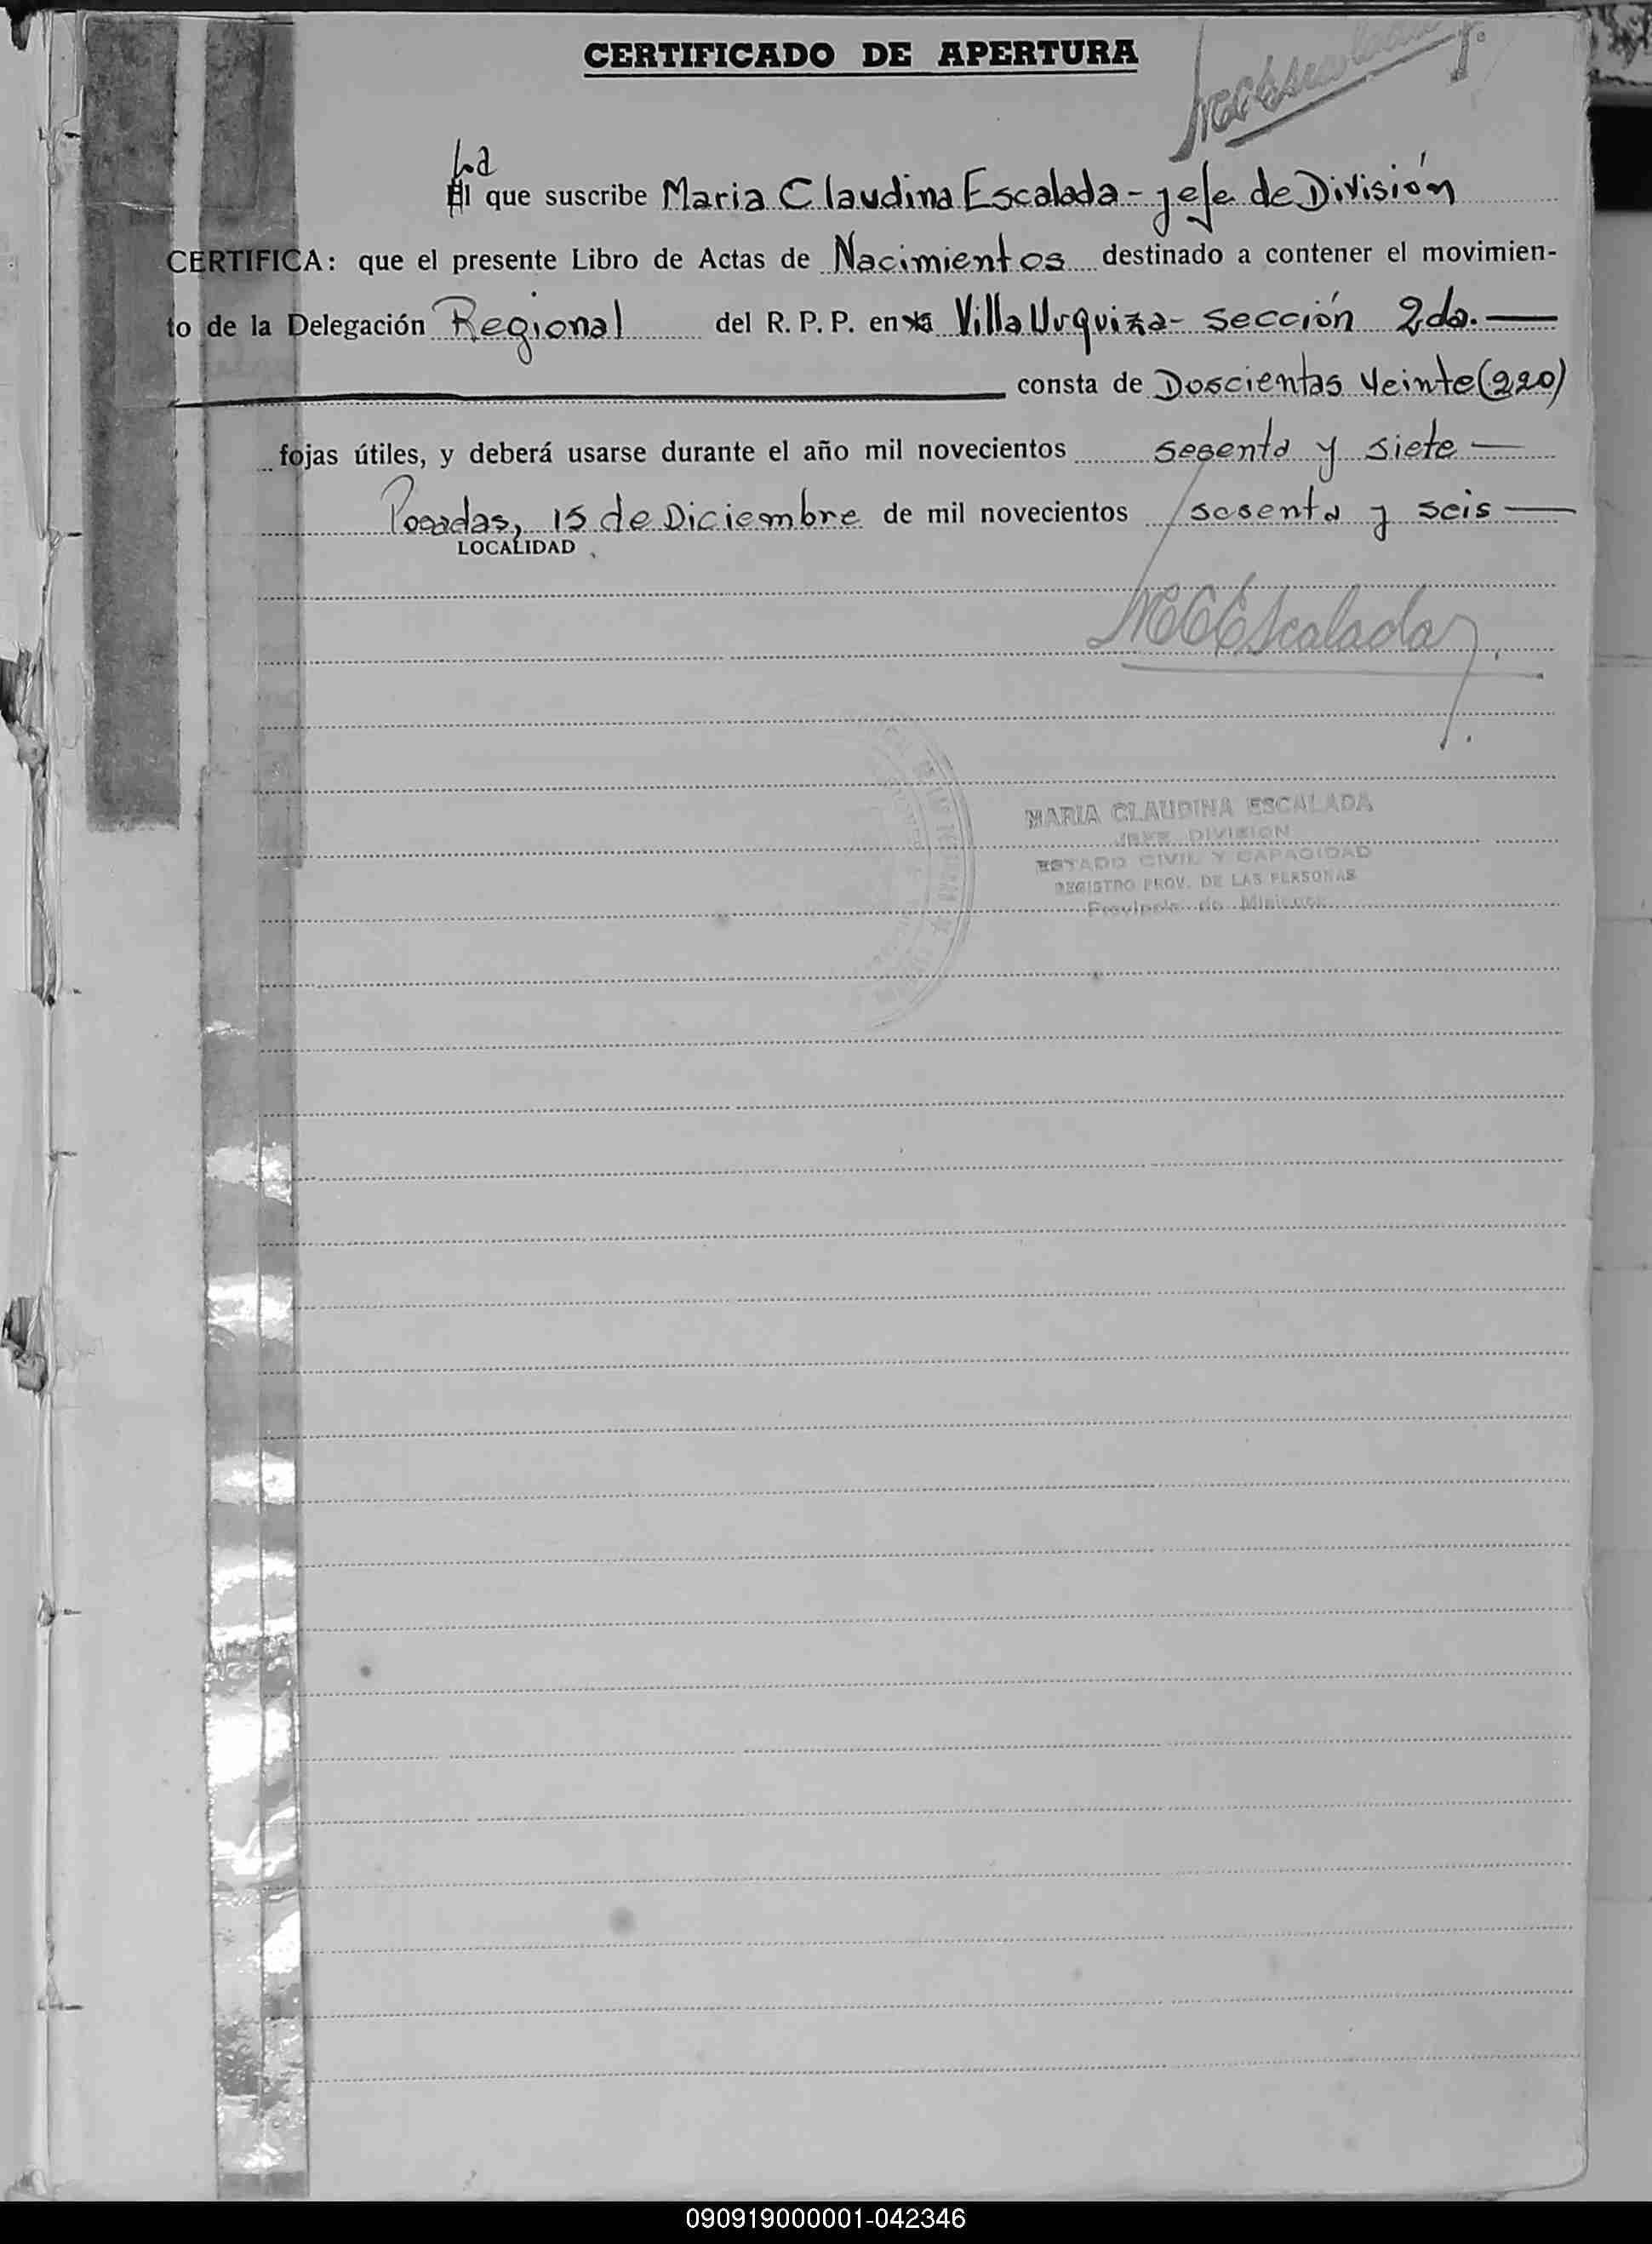 CERTIFICADO DE APERTURA
La
El que suscribe Maria Claudina Escalada - jefe de División
CERTIFICA: que el presente Libro de Actas de Nacimientos destinado a contener el movimien-
to de la Delegación Regional del R. P. P. en Villa Urquiza - sección 2da.
consta de Doscientas Veinte (220)
fojas útiles, y deberá usarse durante el año mil novecientos sesenta y siete
Posadas, 15 de Diciembre de mil novecientos sesenta y seis
LOCALIDAD
MCEscalada
MARIA CLAUDINA ESCALADA
JEFE DIVISION
ESTADO CIVIL Y CAPACIDAD
REGISTRO PROV. DE LAS PERSONAS
Provincia de Misiones
090919000001-042346